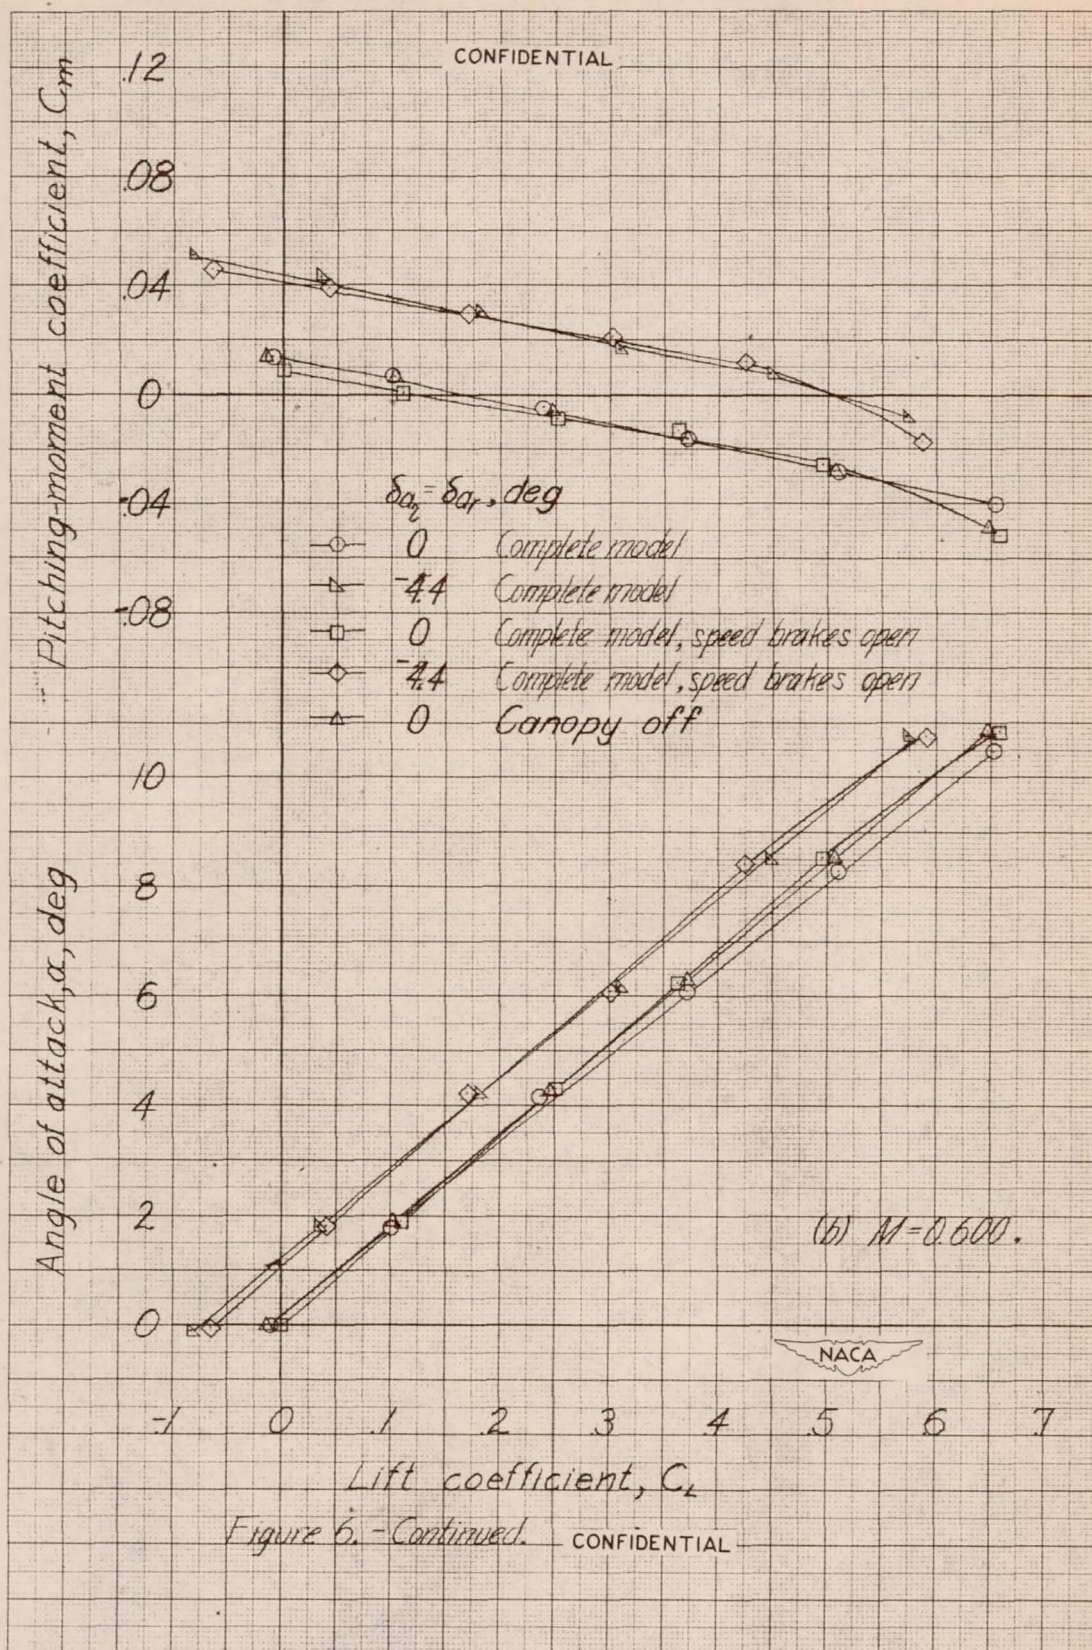 CONFIDENTIAL
Pitching-moment coefficient, Cm
.12
.08
.04
0
-.04
-.08
δaℓ = δar, deg
0 Complete model
-4.4 Complete model
0 Complete model, speed brakes open
-4.4 Complete model, speed brakes open
0 Canopy off
Angle of attack, α, deg
10
8
6
4
2
0
(b) M=0.600.
NACA
-.1 0 .1 .2 .3 .4 .5 .6 .7
Lift coefficient, CL
Figure 6. - Continued.
CONFIDENTIAL